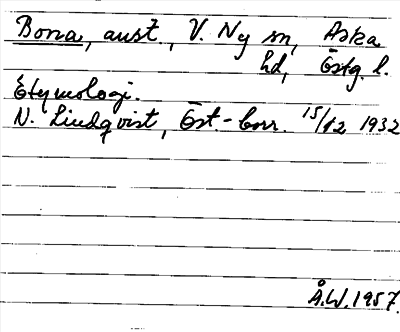 Bona, aust., V. Ny sn, Aska
hd, Östg. l.
Etymologi.
N. Lindqvist, Öst.-Corr. 15/12 1932
Å.W. 1957.